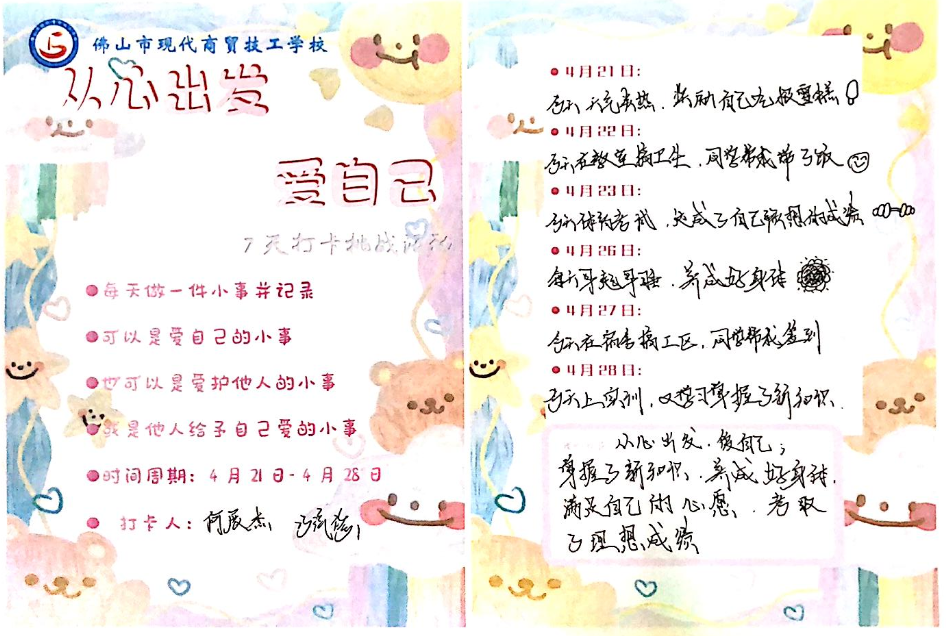 佛山市现代商贸技工学校
从心出发
爱自己
7天打卡挑战活动
每天做一件小事并记录
可以是爱自己的小事
也可以是爱护他人的小事
我是他人给予自己爱的小事
时间周期：4月21日-4月28日
打卡人：
4月21日：
今天天气炎热，奖励自己吃根雪糕
4月22日：
今天在教室搞卫生，同学帮我带了饭
4月23日：
今天体能考试，达成了自己预想的成绩
4月26日：
每天早起早睡，养成好身体
4月27日：
今天在宿舍搞工区，同学帮我签到
4月28日：
今天上实训，又学习掌握了新知识．
从心出发．爱自己；
掌握了新知识．养成好身体．
满足自己的心愿．考取
了理想成绩